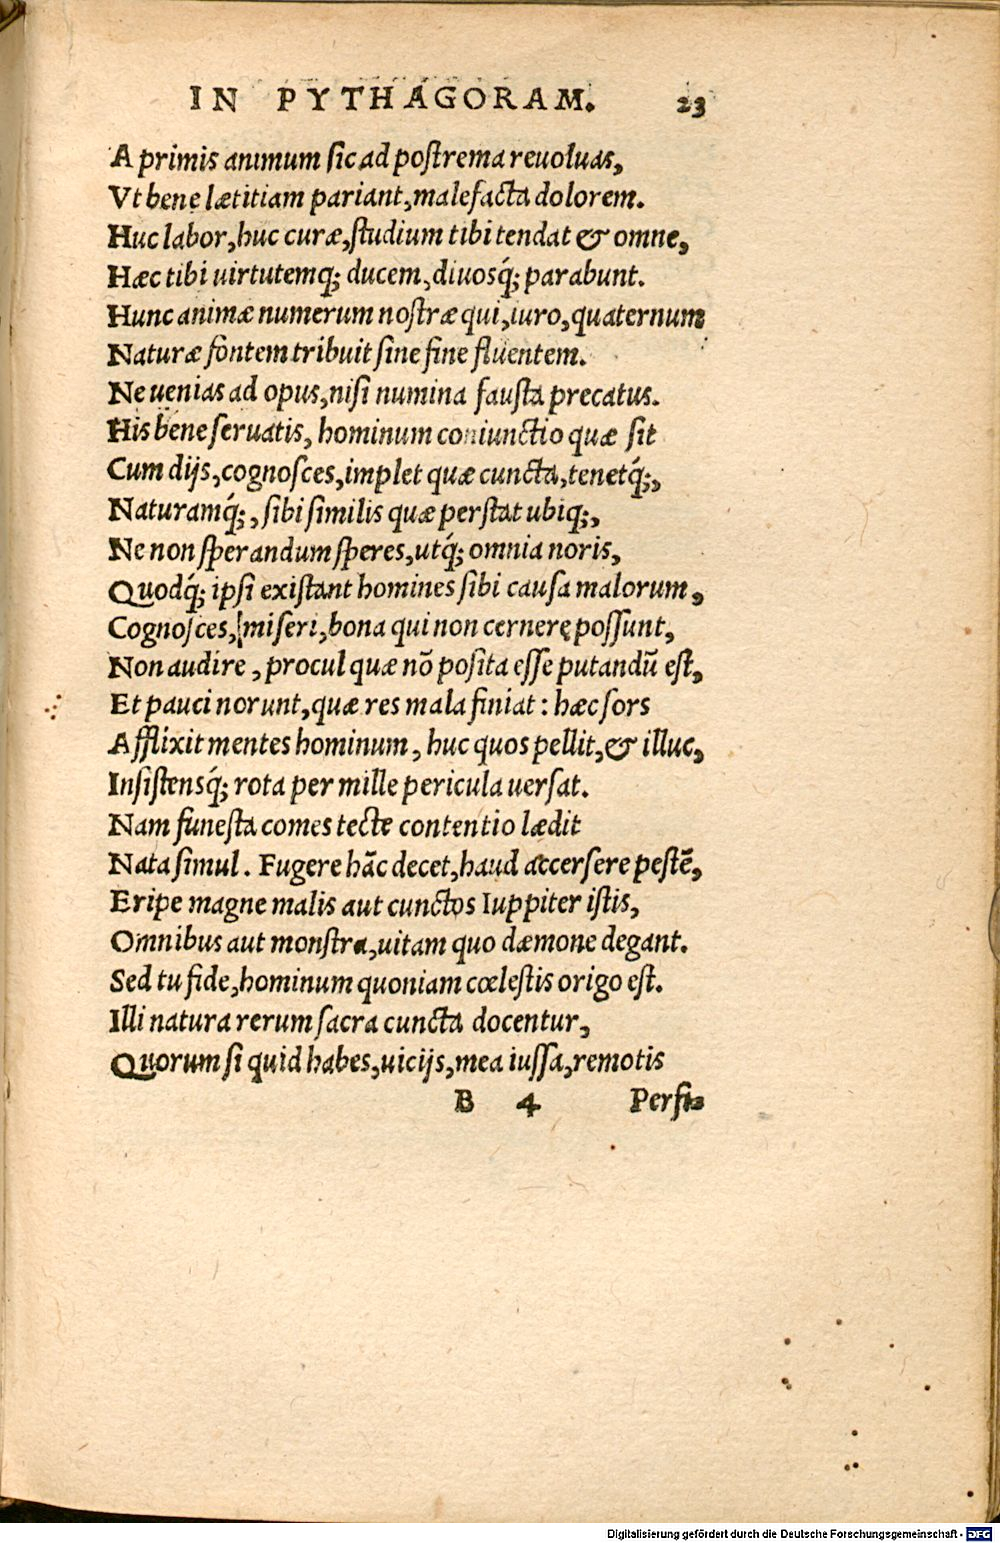 IN PYTHAGORAM. 23
A primis animum sic ad postrema reuoluas,
Vt bene lætitiam pariant, malefacta dolorem.
Huc labor, huc curæ, studium tibi tendat & omne,
Hæc tibi uirtutemq́; ducem, diuosq́; parabunt.
Hunc animæ numerum nostræ qui, iuro, quaternum
Naturæ fontem tribuit sine fine fluentem.
Ne uenias ad opus, nisi numina fausta precatus.
His bene seruatis, hominum coniunctio quæ sit
Cum dijs, cognosces, implet quæ cuncta, tenetq́;,
Naturamq́;, sibi similis quæ perstat ubiq;,
Ne non sperandum speres, utq́; omnia noris,
Quodq́; ipsi existant homines sibi causa malorum,
Cognosces, miseri, bona qui non cernerę possunt,
Non audire, procul quæ nõ posita esse putandũ est,
Et pauci norunt, quæ res mala finiat: hæc sors
Afflixit mentes hominum, huc quos pellit, & illuc,
Insistensq́; rota per mille pericula uersat.
Nam funesta comes tecte contentio lædit
Nata simul. Fugere hãc decet, haud accersere pestẽ,
Eripe magne malis aut cunctos Iuppiter istis,
Omnibus aut monstra, uitam quo dæmone degant.
Sed tu fide, hominum quoniam cœlestis origo est.
Illi natura rerum sacra cuncta docentur,
Quorum si quid habes, uicijs, mea iussa, remotis
B 4 Persi-
Digitalisierung gefördert durch die Deutsche Forschungsgemeinschaft - DFG